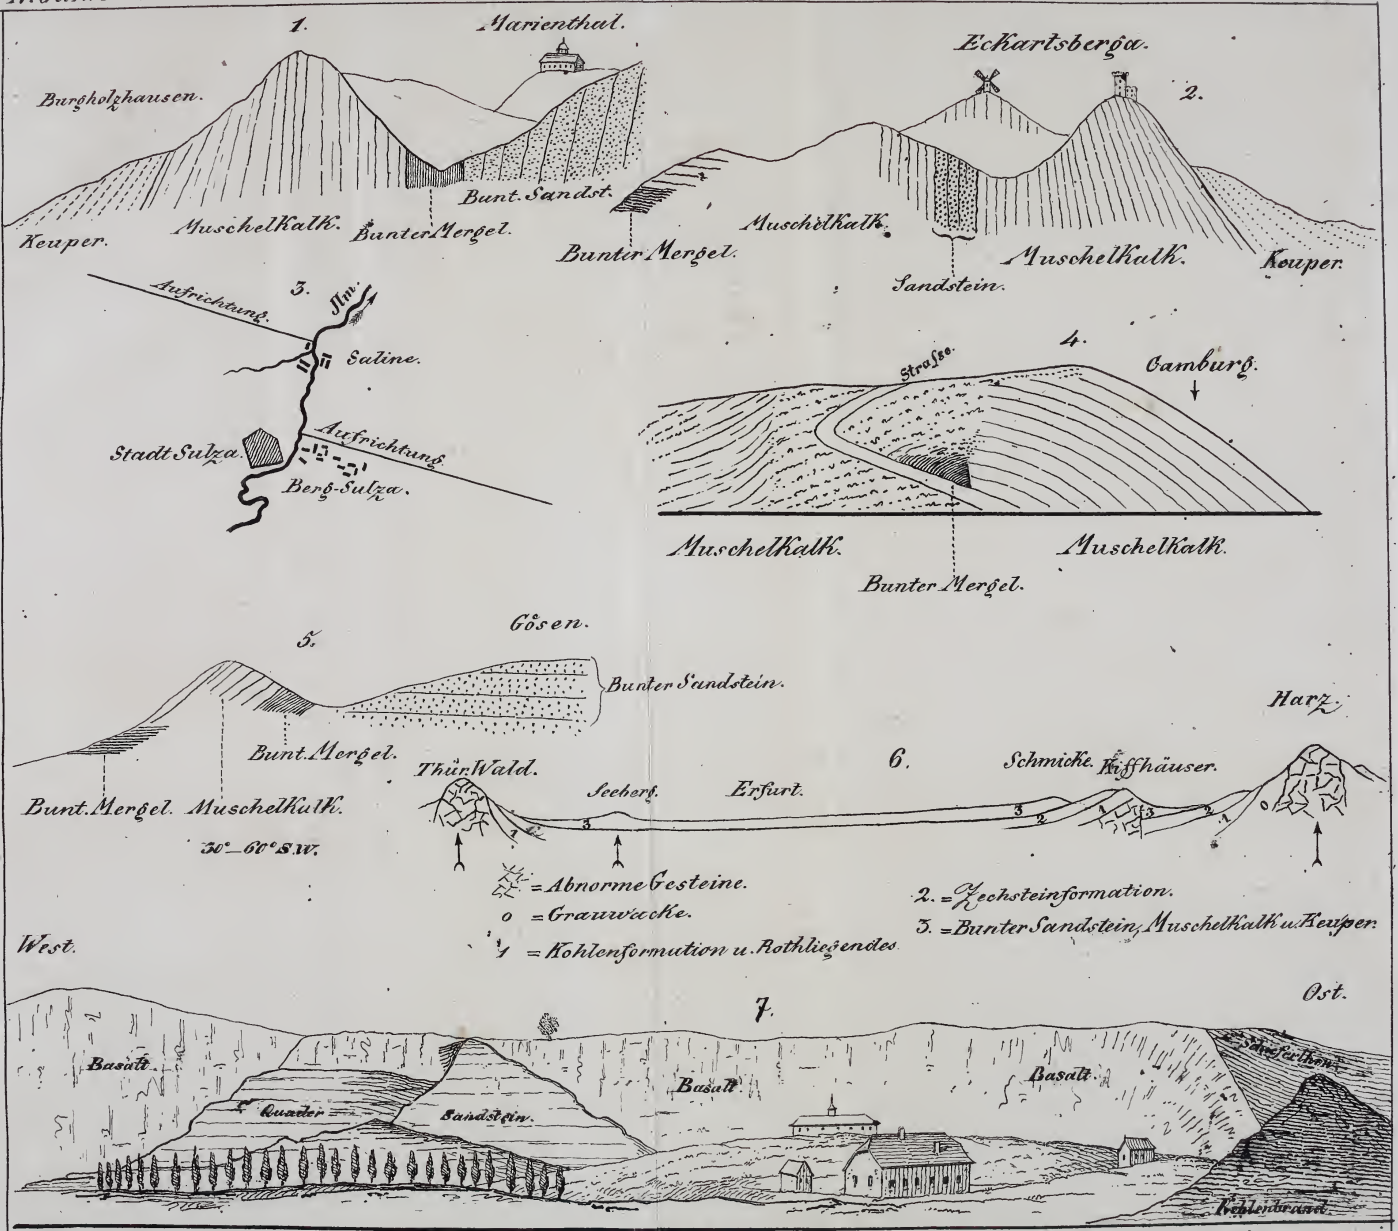 1.
Marienthal.
Burgholzhausen.
Keuper.
Muschelkalk.
Bunter Mergel.
Bunt. Sandst.
Eckartsberga.
2.
1
Bunter Mergel.
Muschelkalk.
Sandstein.
Muschelkalk.
Keuper.
3.
Aufrichtung.
Ilm.
Saline.
Stadt Sulza.
Aufrichtung
Berg-Sulza.
4.
Straſse.
Camburg.
Muschelkalk.
Muschelkalk.
Bunter Mergel.
5.
Gösen.
Bunter Sandstein.
Bunt. Mergel.
Bunt. Mergel.
Muschelkalk.
30°–60° S.W.
6.
Thür. Wald.
Seeberg.
Erfurt.
Schmicke.
Kiffhäuser.
Harz.
1
3
3
2
1
3
2
1
0
= Abnorme Gesteine.
0 = Grauwacke.
1 = Kohlenformation u. Rothliegendes
2. = Zechsteinformation.
3. = Bunter Sandstein, Muschelkalk u. Keuper.
West.
7.
Ost.
Basalt.
Quader
Sandstein.
Basalt
Basalt.
Schieferthon
Kohlenbrand